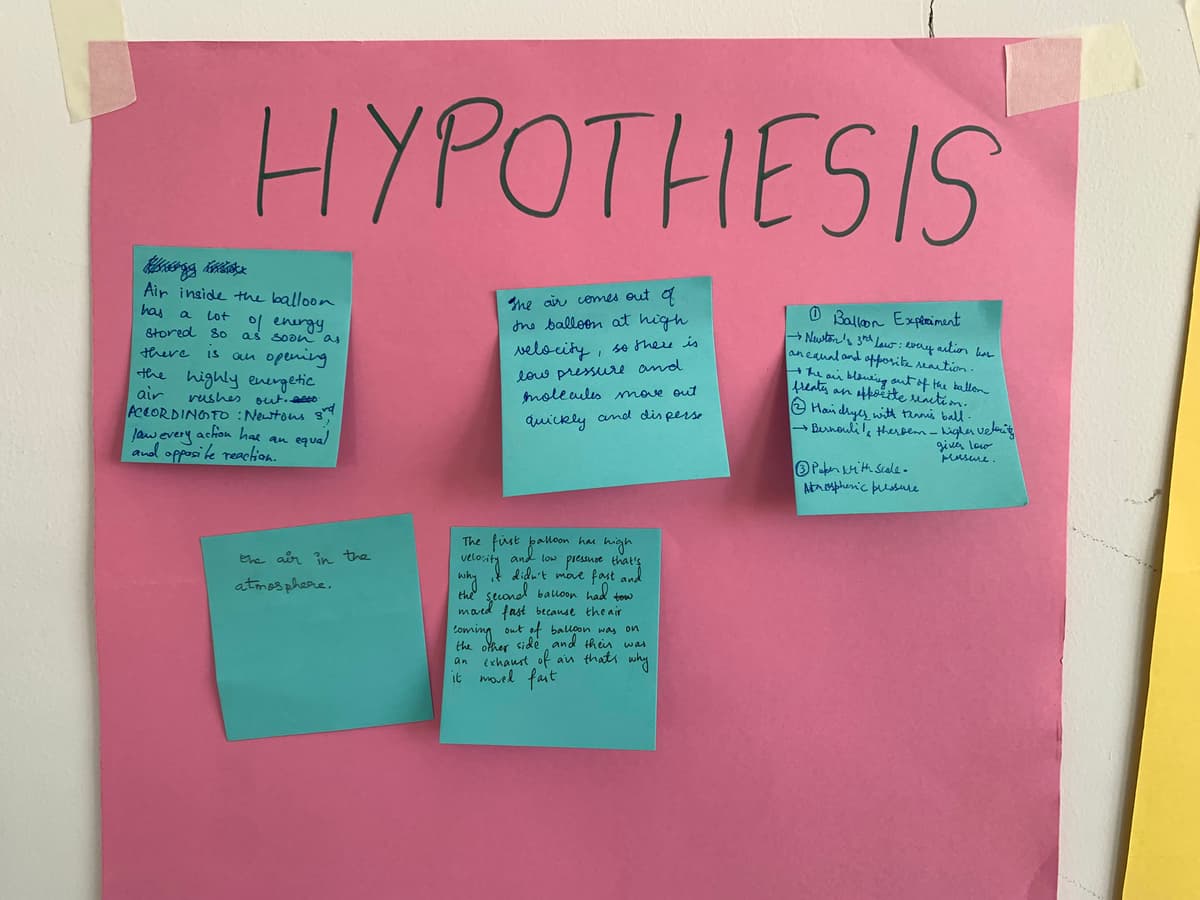 HYPOTHESIS
Air inside the balloon
has a lot of energy
stored so as soon as
there is an opening
the highly energetic
air rushes out.
ACCORDING TO : Newtons 3rd
law every action has an equal
and opposite reaction.
The air comes out of
the balloon at high
velocity, so there is
low pressure and
molecules move out
quickly and disperse
① Balloon Experiment
→ Newton's 3rd law: every action has
an equal and opposite reaction.
→ The air blowing out of the ballon
creates an opposite reaction.
② Hair dryer with tennis ball.
→ Bernouli's theroem - higher velocity
gives low
pressure.
③ Paper with Scale.
Atmospheric pressure
the air in the
atmosphere.
The first balloon has high
velosity and low pressure that's
why it didn't move fast and
the second balloon had
moved fast because the air
coming out of balloon was on
the other side and their was
an exhaust of air thats why
it moved fast